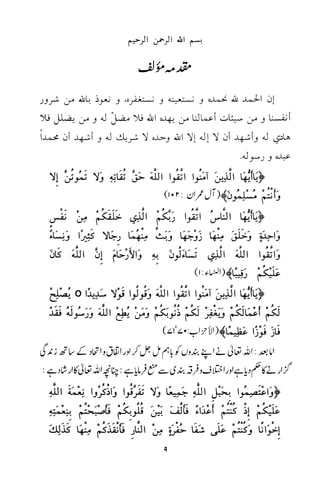 بسم الله الرحمن الرحيم
مقدمہ مؤلف
إن الحمد لله نحمده و نستعينه و نستغفره، و نعوذ بالله من شرور
أنفسنا و من سيئات أعمالنا من يهده الله فلا مضلّ له و من يضلل فلا
هادي له وأشهد أن لا إله إلا الله وحده لا شريك له و أشهد أن محمداً
عبده و رسوله.
﴿يَاأَيُّهَا الَّذِينَ آمَنُوا اتَّقُوا اللَّهَ حَقَّ تُقَاتِهِ وَلَا تَمُوتُنَّ إِلَّا
وَأَنْتُمْ مُسْلِمُونَ﴾(آل عمران : ۱۰۲)
﴿يَاأَيُّهَا النَّاسُ اتَّقُوا رَبَّكُمُ الَّذِي خَلَقَكُمْ مِنْ نَفْسٍ
وَاحِدَةٍ وَخَلَقَ مِنْهَا زَوْجَهَا وَبَثَّ مِنْهُمَا رِجَالًا كَثِيرًا وَنِسَاءً
وَاتَّقُوا اللَّهَ الَّذِي تَسَاءَلُونَ بِهِ وَالْأَرْحَامَ إِنَّ اللَّهَ كَانَ
عَلَيْكُمْ رَقِيبًا﴾(النساء:۱)
﴿يَاأَيُّهَا الَّذِينَ آمَنُوا اتَّقُوا اللَّهَ وَقُولُوا قَوْلًا سَدِيدًا o يُصْلِحْ
لَكُمْ أَعْمَالَكُمْ وَيَغْفِرْ لَكُمْ ذُنُوبَكُمْ وَمَنْ يُطِعِ اللَّهَ وَرَسُولَهُ فَقَدْ
فَازَ فَوْزًا عَظِيمًا﴾(الأحزاب:۷۰،۷۱)
اما بعد : اللہ تعالیٰ نے اپنے بندوں کو باہم مل جل کر اور اتفاق و اتحاد کے ساتھ زندگی
گزارنے کا حکم دیا ہے اور اختلاف و فرقہ بندی سے منع فرمایا ہے؛ چنانچہ اللہ تعالیٰ کا ارشاد ہے :
﴿وَاعْتَصِمُوا بِحَبْلِ اللَّهِ جَمِيعًا وَلَا تَفَرَّقُوا وَاذْكُرُوا نِعْمَةَ اللَّهِ
عَلَيْكُمْ إِذْ كُنْتُمْ أَعْدَاءً فَأَلَّفَ بَيْنَ قُلُوبِكُمْ فَأَصْبَحْتُمْ بِنِعْمَتِهِ
إِخْوَانًا وَكُنْتُمْ عَلَى شَفَا حُفْرَةٍ مِنَ النَّارِ فَأَنْقَذَكُمْ مِنْهَا كَذَلِكَ
۹